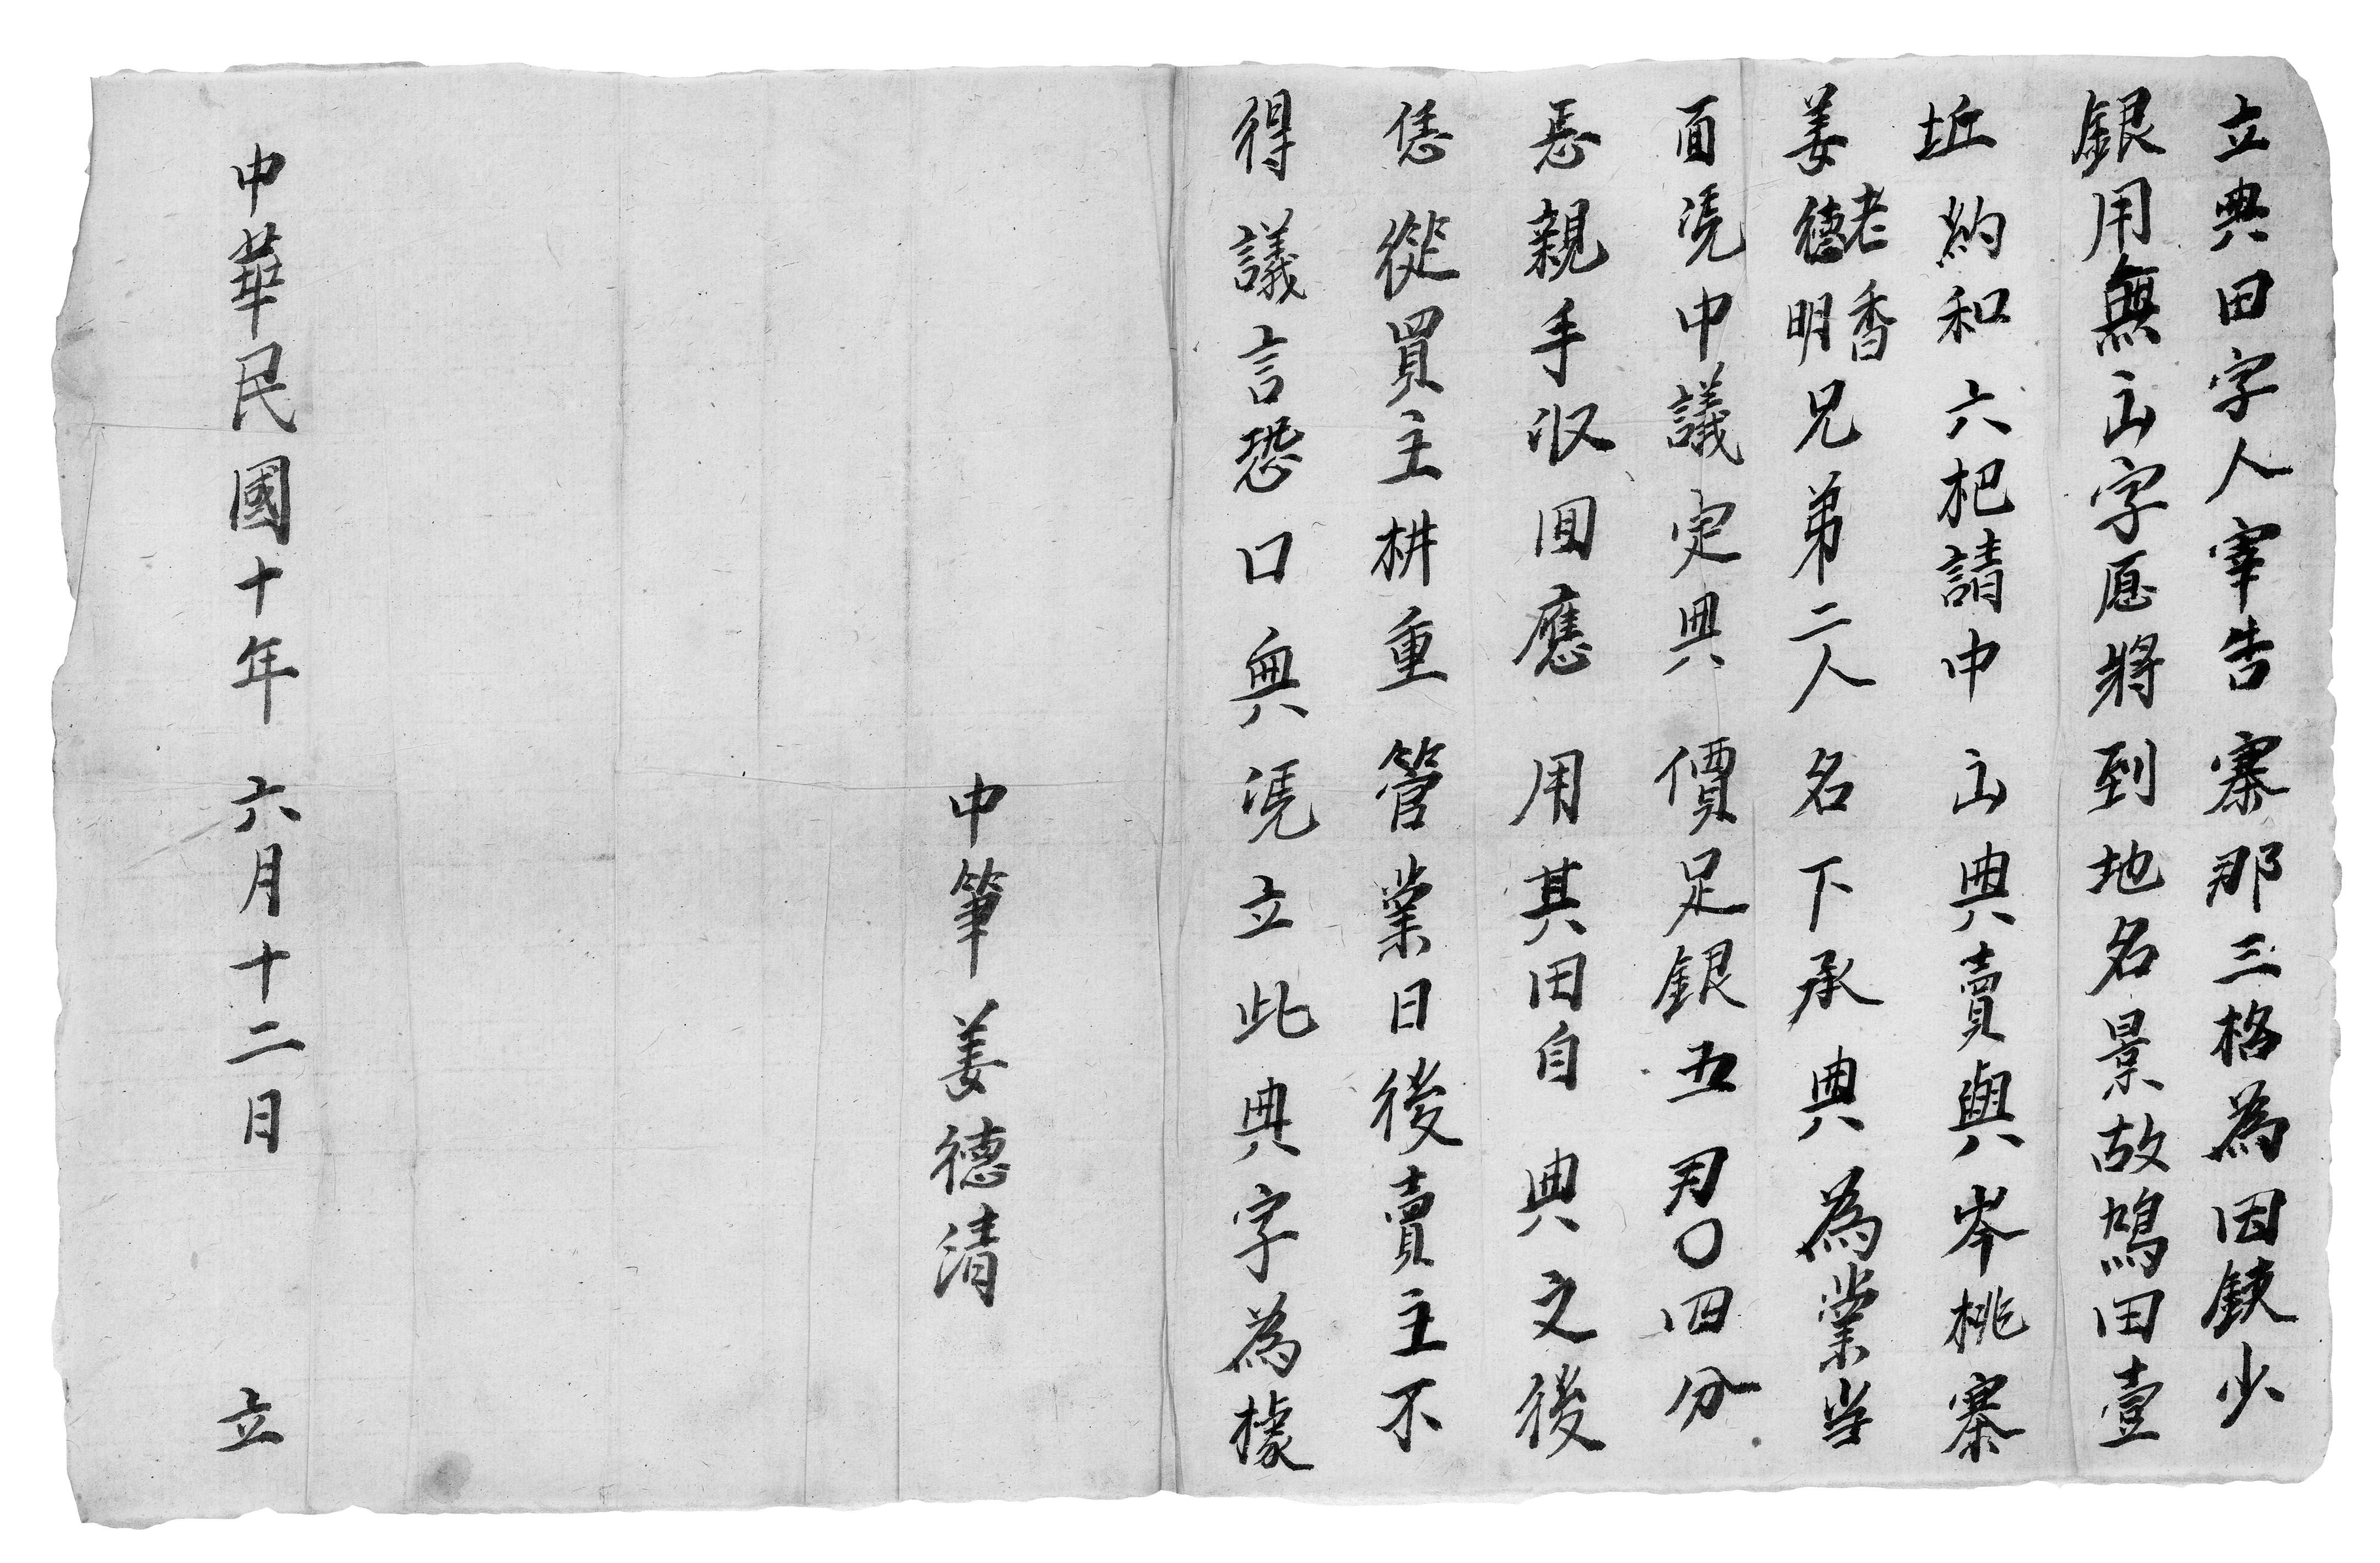 立典田字人宰告寨那三格為因缺少
銀用無山字愿將到地名景故鳩田壹
坵約和六杷請中山典賣與岑桃寨
姜老香德明兄弟二人名下承典為業当
面凴中議定典價足銀五㓅〇四分
親手收回應用其田自典之後
恁從買主耕重管業日後賣主不
得議言恐口無凴立此典字為據
中筆姜德清
中華民國十年六月十二日立